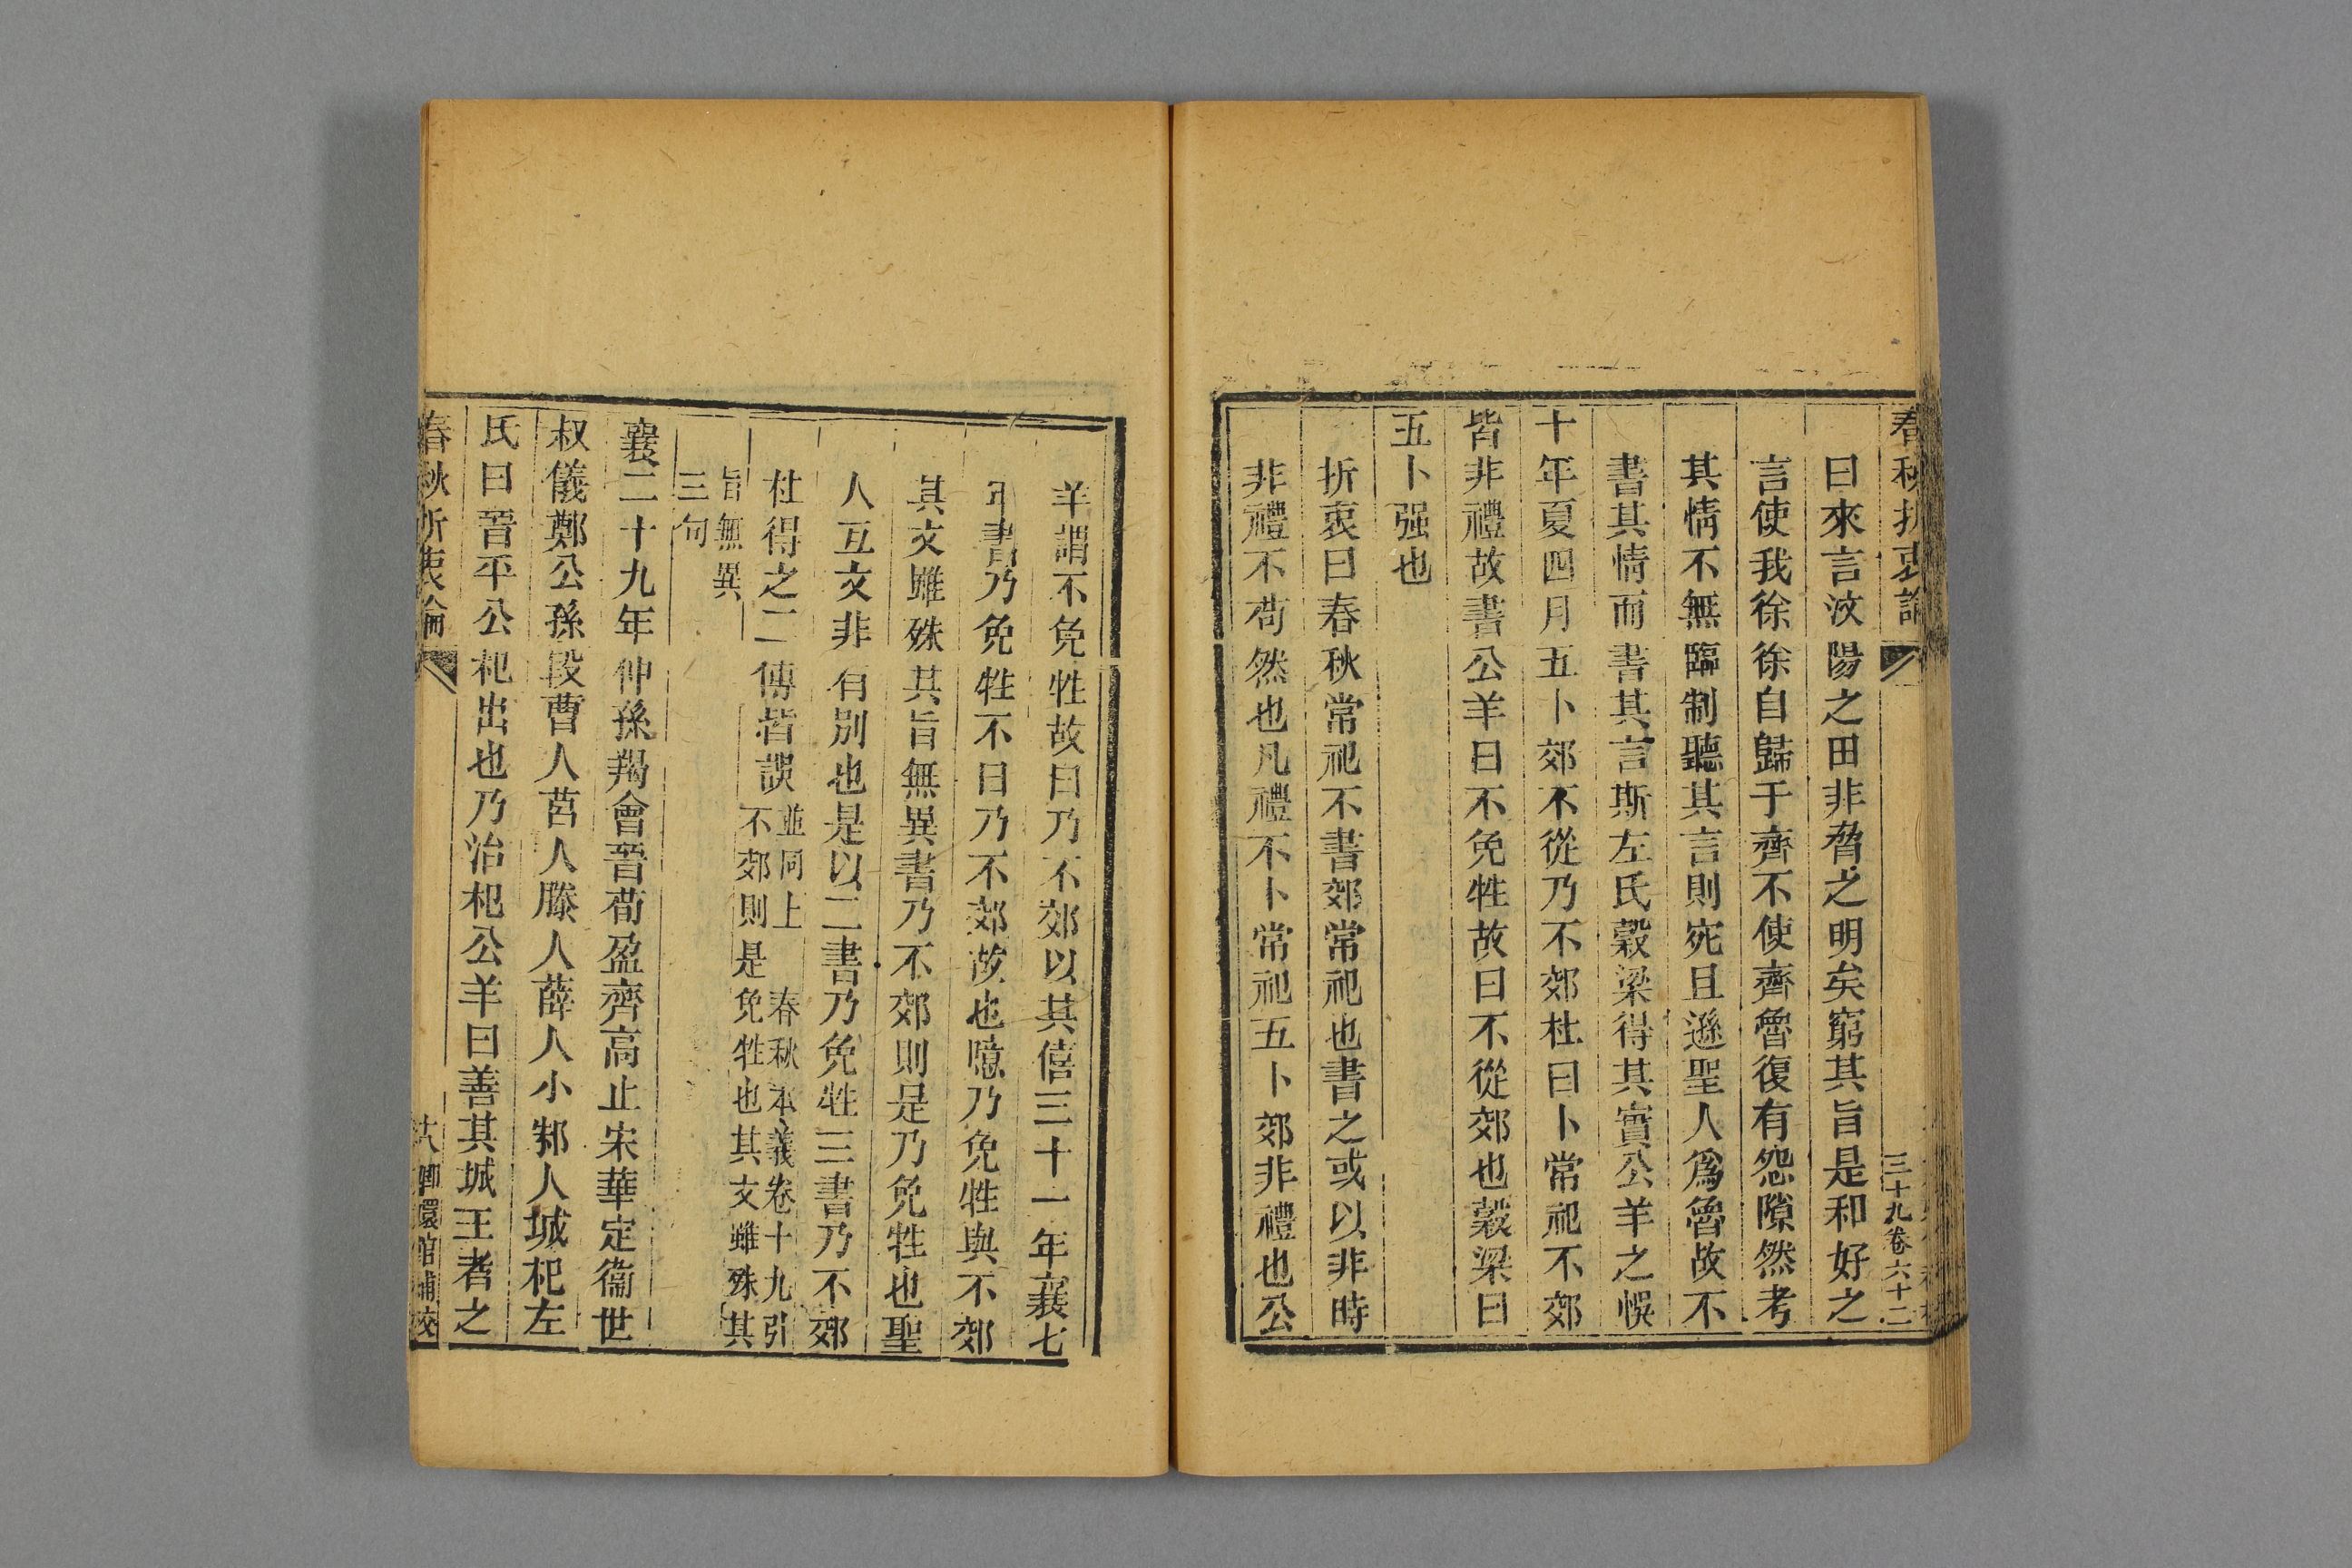 春秋折衷論
三十九卷六十二
曰來言汶陽之田非脅之明矣窮其旨是和好之
言使我徐徐自歸于齊不使齊魯復有怨隙然考
其情不無臨制聽其言則宛且遜聖人爲魯故不
書其情而書其言斯左氏穀梁得其實公羊之悞
十年夏四月五卜郊不從乃不郊杜曰卜常祀不郊
皆非禮故書公羊曰不免牲故曰不從郊也穀梁曰
五卜强也
折衷曰春秋常祀不書郊常祀也書之或以非時
非禮不苟然也凡禮不卜常祀五卜郊非禮也公
羊謂不免牲故曰乃不郊以其僖三十一年襄七
年書乃免牲不曰乃不郊故也噫乃免牲與不郊
其文雖殊其旨無異書乃不郊則是乃免牲也聖
人互文非有別也是以二書乃免牲三書乃不郊
杜得之二傳皆誤並同上 春秋本義卷十九引
不郊則是免牲也其文雖殊其
旨無異
三句
襄二十九年仲孫羯會晉荀盈齊高止宋華定衞世
叔儀鄭公孫段曹人莒人滕人薛人小邾人城杞左
氏曰晉平公杞出也乃治杞公羊曰善其城王者之
春秋折衷論
六 嫏嬛館補校